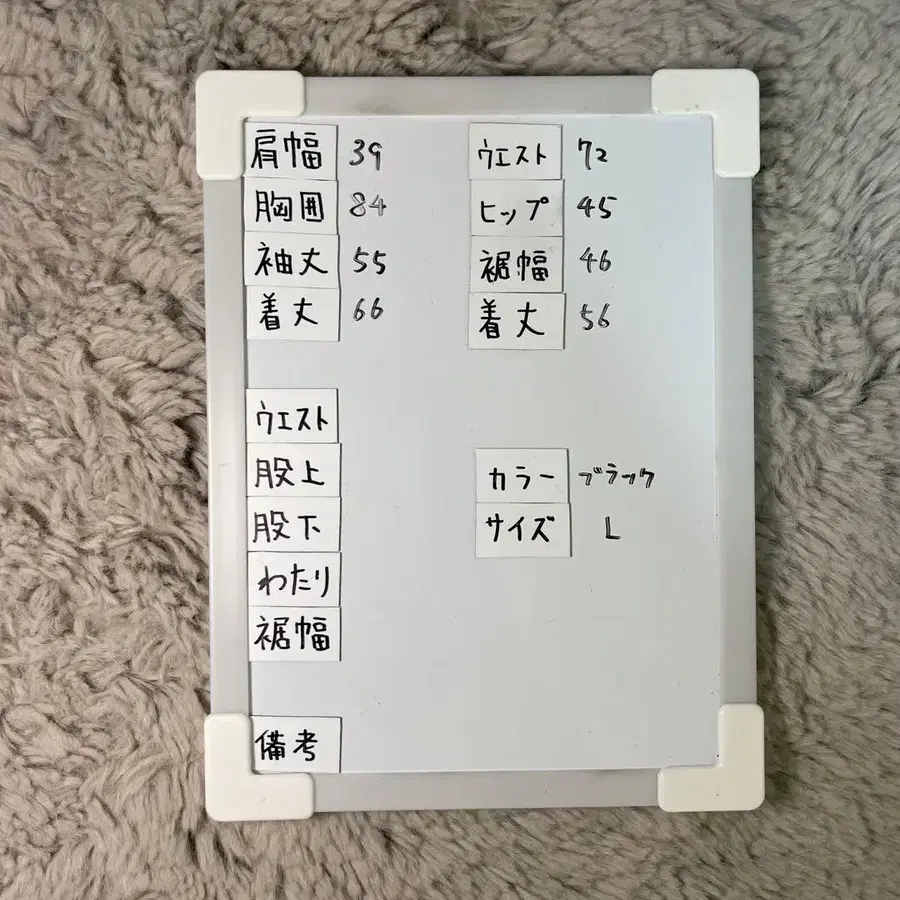 肩幅 39
胸囲 84
袖丈 55
着丈 66
ウエスト 72
ヒップ 45
裾幅 46
着丈 56
ウエスト
股上
股下
わたり
裾幅
カラー ブラック
サイズ L
備考